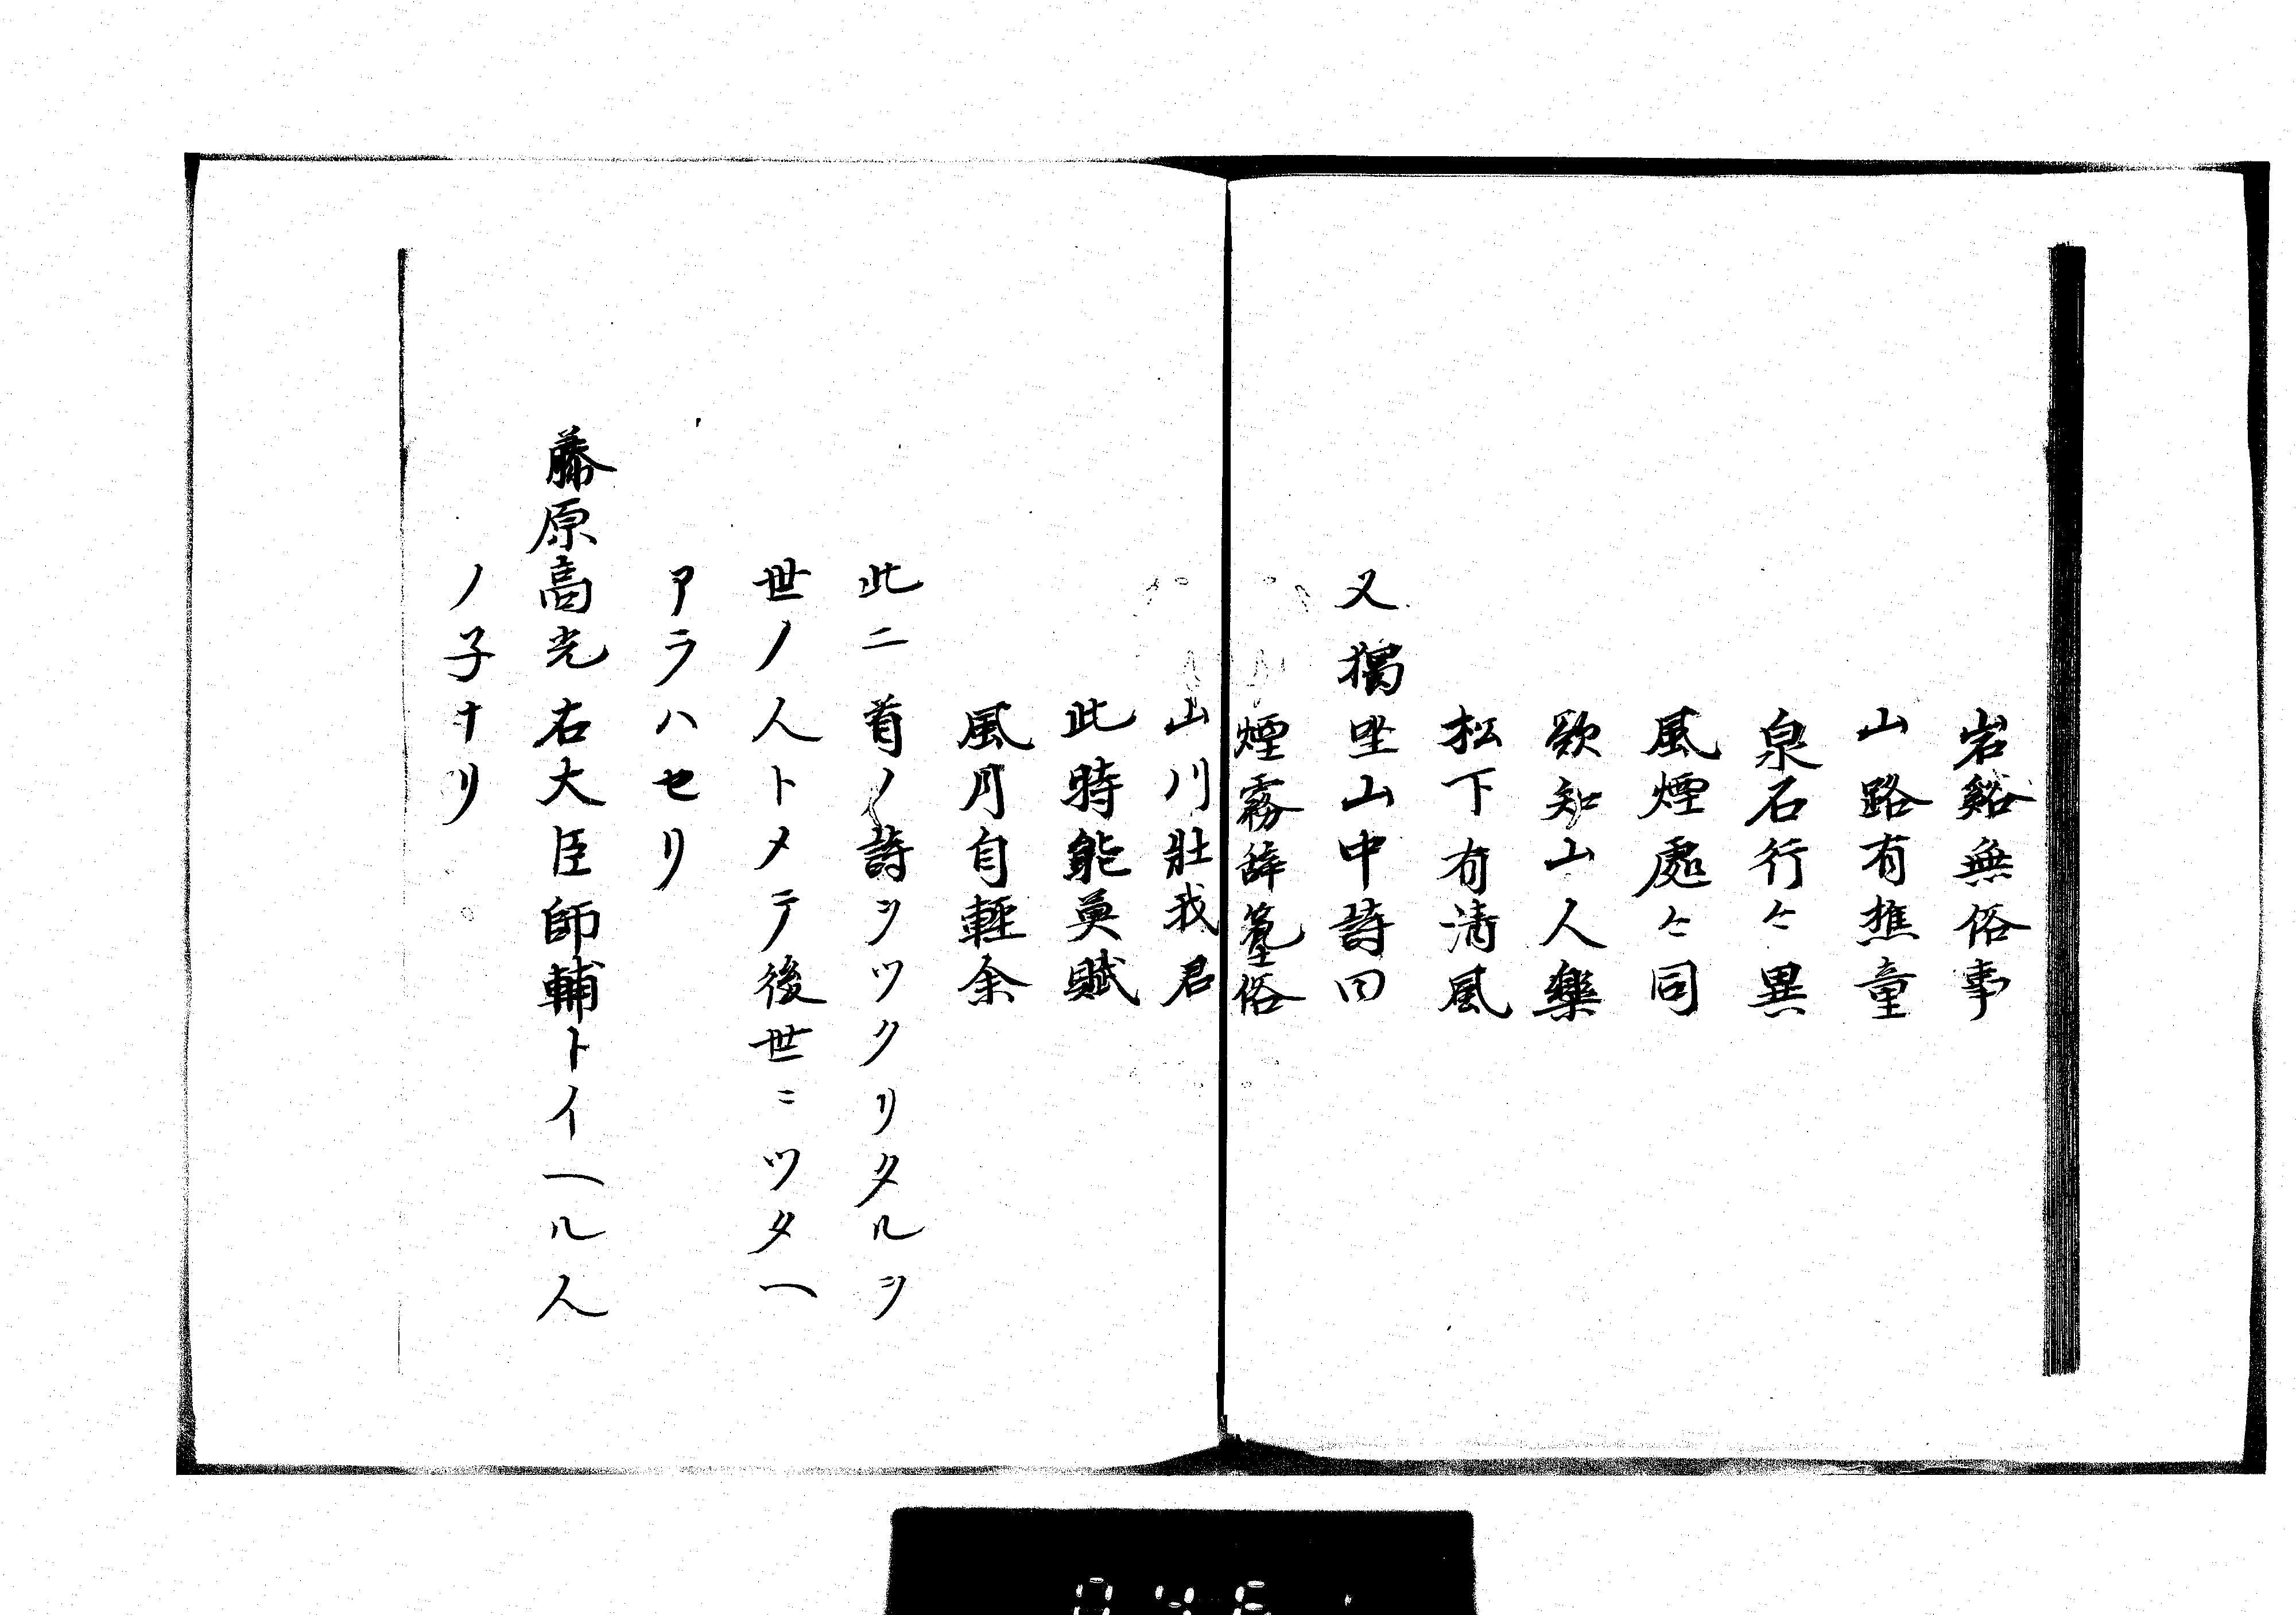 岩谿無俗事
山路有樵童
泉石行〻異
風煙處〻同
欲知山人樂
松下有清風
又獨坐山中詩曰
煙霧辞塵俗
山川壯我君
此時能莫賦
風月自輕余
此二首ノ詩ヲツクリタルヲ
世ノ人トメテ後世ニツタヘ
アラハセリ
藤原高光右大臣師輔トイヘル人
ノ子ナリ